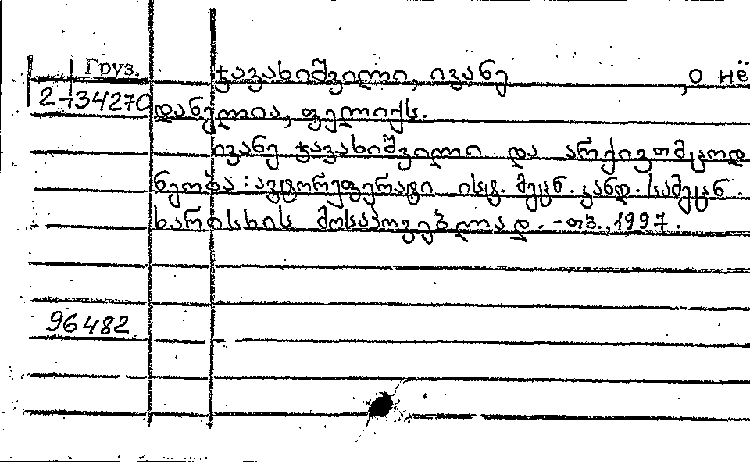 Груз. ჯავახიშვილი, ივანე ,о нё
2-34270 დანელია, ფელიქს.
ივანე ჯავახიშვილი და არქივთმცოდ
ნეობა : ავტორეფერატი ისტ. მეცნ. კანდ. სამეცნ.
ხარისხის მოსაპოვებლად. -თბ., 1997.
96482